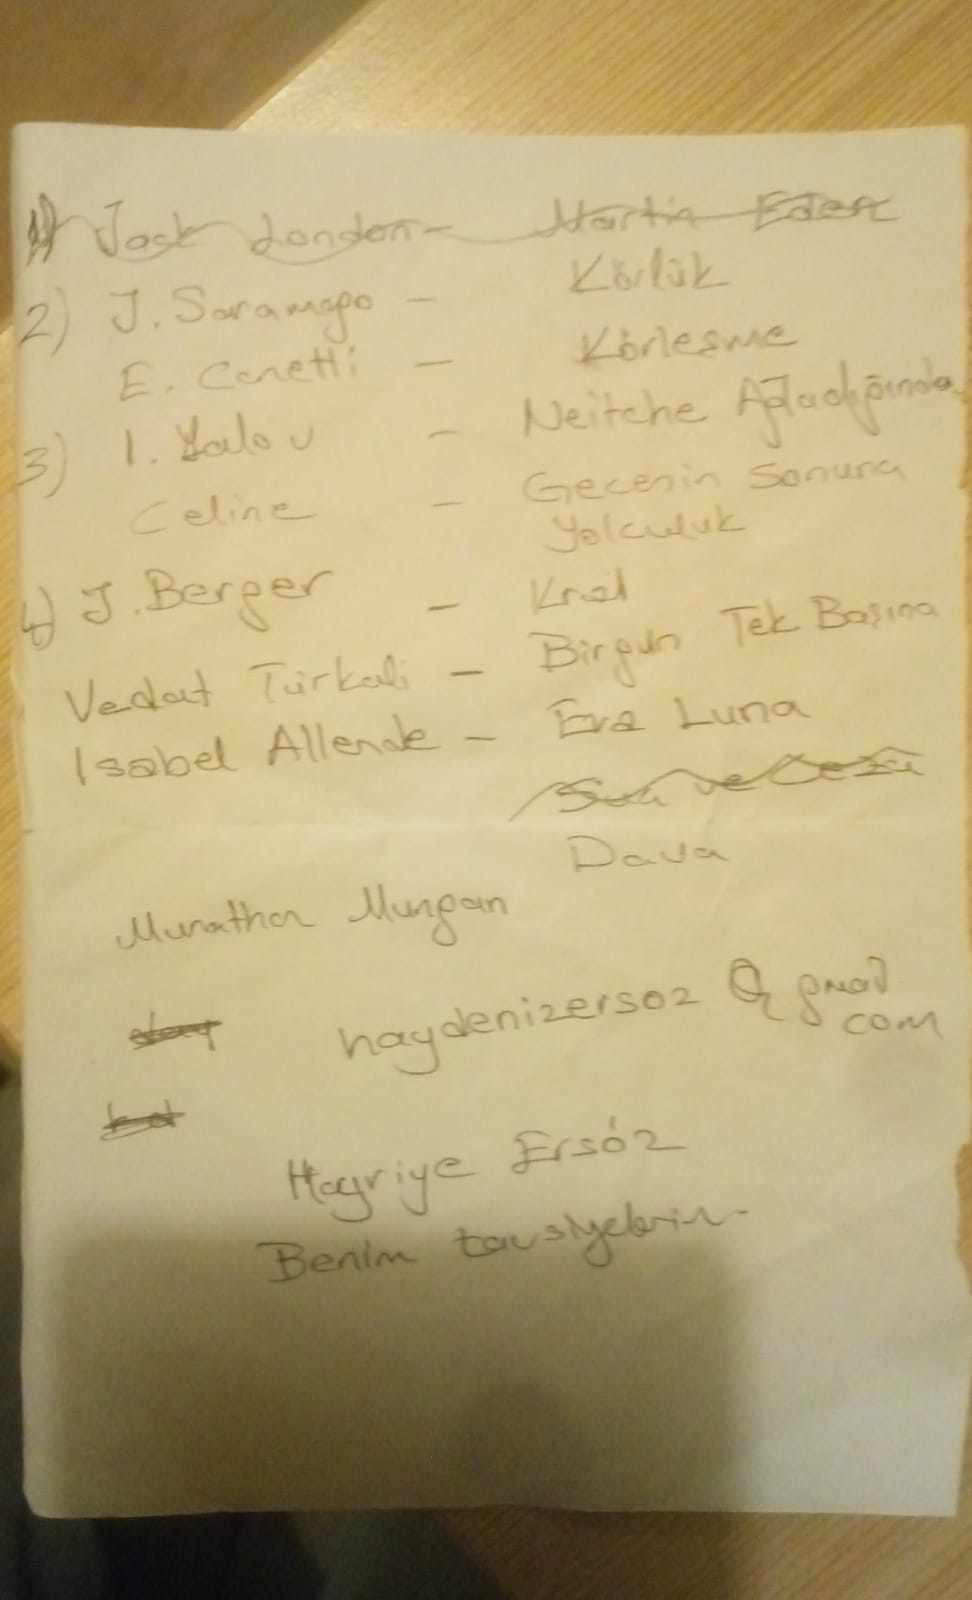 1) Jack London - Martin Eden
2) J. Saramago - Körlük
E. Canetti - Körleşme
3) I. Yalov - Neitche Ağladığında
Celine - Gecenin Sonuna
Yolculuk
4) J. Berger - Kral
Vedat Türkali - Birgün Tek Başına
Isabel Allende - Eva Luna
Suç ve Ceza
Dava
Murathan Mungan
haydenizersoz @ gmail
com
Hayriye Ersöz
Benim tavsiyelerim